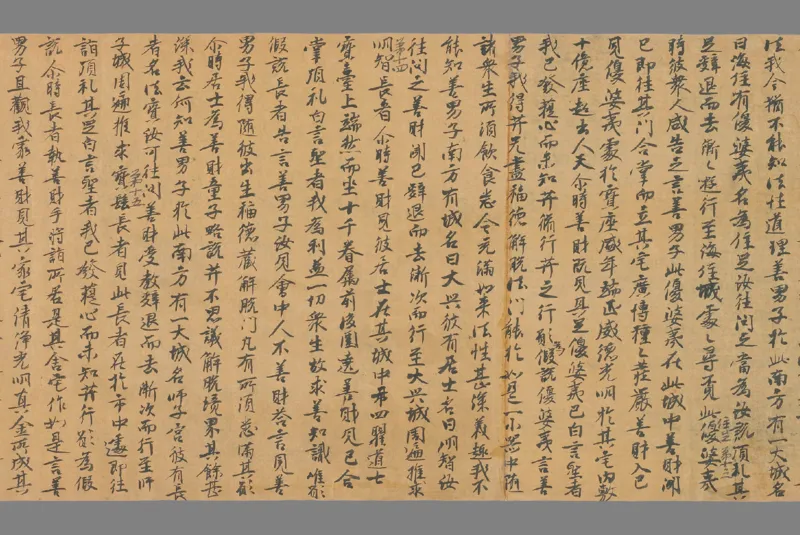 法我今猶不能知法性道理善男子於此南方有一大城名
曰海住有優婆夷名為住足汝往問之當為汝說頂礼其
足辭退而去漸〻遊行至海住城處〻尋覓此優婆夷
住足第十三
時彼衆人咸告之言善男子此優婆夷在此城中善財聞
已即往其門合掌而立其宅廣博種〻莊嚴善財入已
見優婆夷處於寶座盛年端正威德光明於其宅內敷
十億座超出人天尒時善財既見具足優婆夷已白言聖者
我已發菩提心而未知𦬇修行𦬇之行願為假說優婆夷言善
男子我得𦬇无盡福德解脫法門能於如是一小器中隨
諸衆生所須飲食悉令充滿如來法性甚深義趣我不
能知善男子南方有城名曰大興彼有居士名曰明智汝
往問之善財聞已辭退而去漸次而行至大興城周遍推求
第十四
明智長者尒時善財見彼居士在其城中市四衢道七
寶臺上端然而坐十千眷属前後圍遶善財見已合
掌頂礼白言聖者我為利益一切衆生故求善知識唯願
假說長者告言善男子汝見會中人不善財荅言見善
男子我得隨彼出生福德藏解脫門凡有所須悉滿其願
尒時居士為善財童子略說𦬇不思議解脫境界其餘甚
深我云何知善男子於此南方有一大城名師子宮彼有長
者名法寶汝可往問善財受教辭退而去漸次而行至師
第十五
子城周遍推求寶髻長者見此長者在於市中遽即往
詣頂礼其足白言聖者我已發菩提心而未知𦬇行願為假
說尒時長者執善財手將詣所居是其舍宅作如是言善
男子且觀我家善財見其家宅清淨光明真金所成其